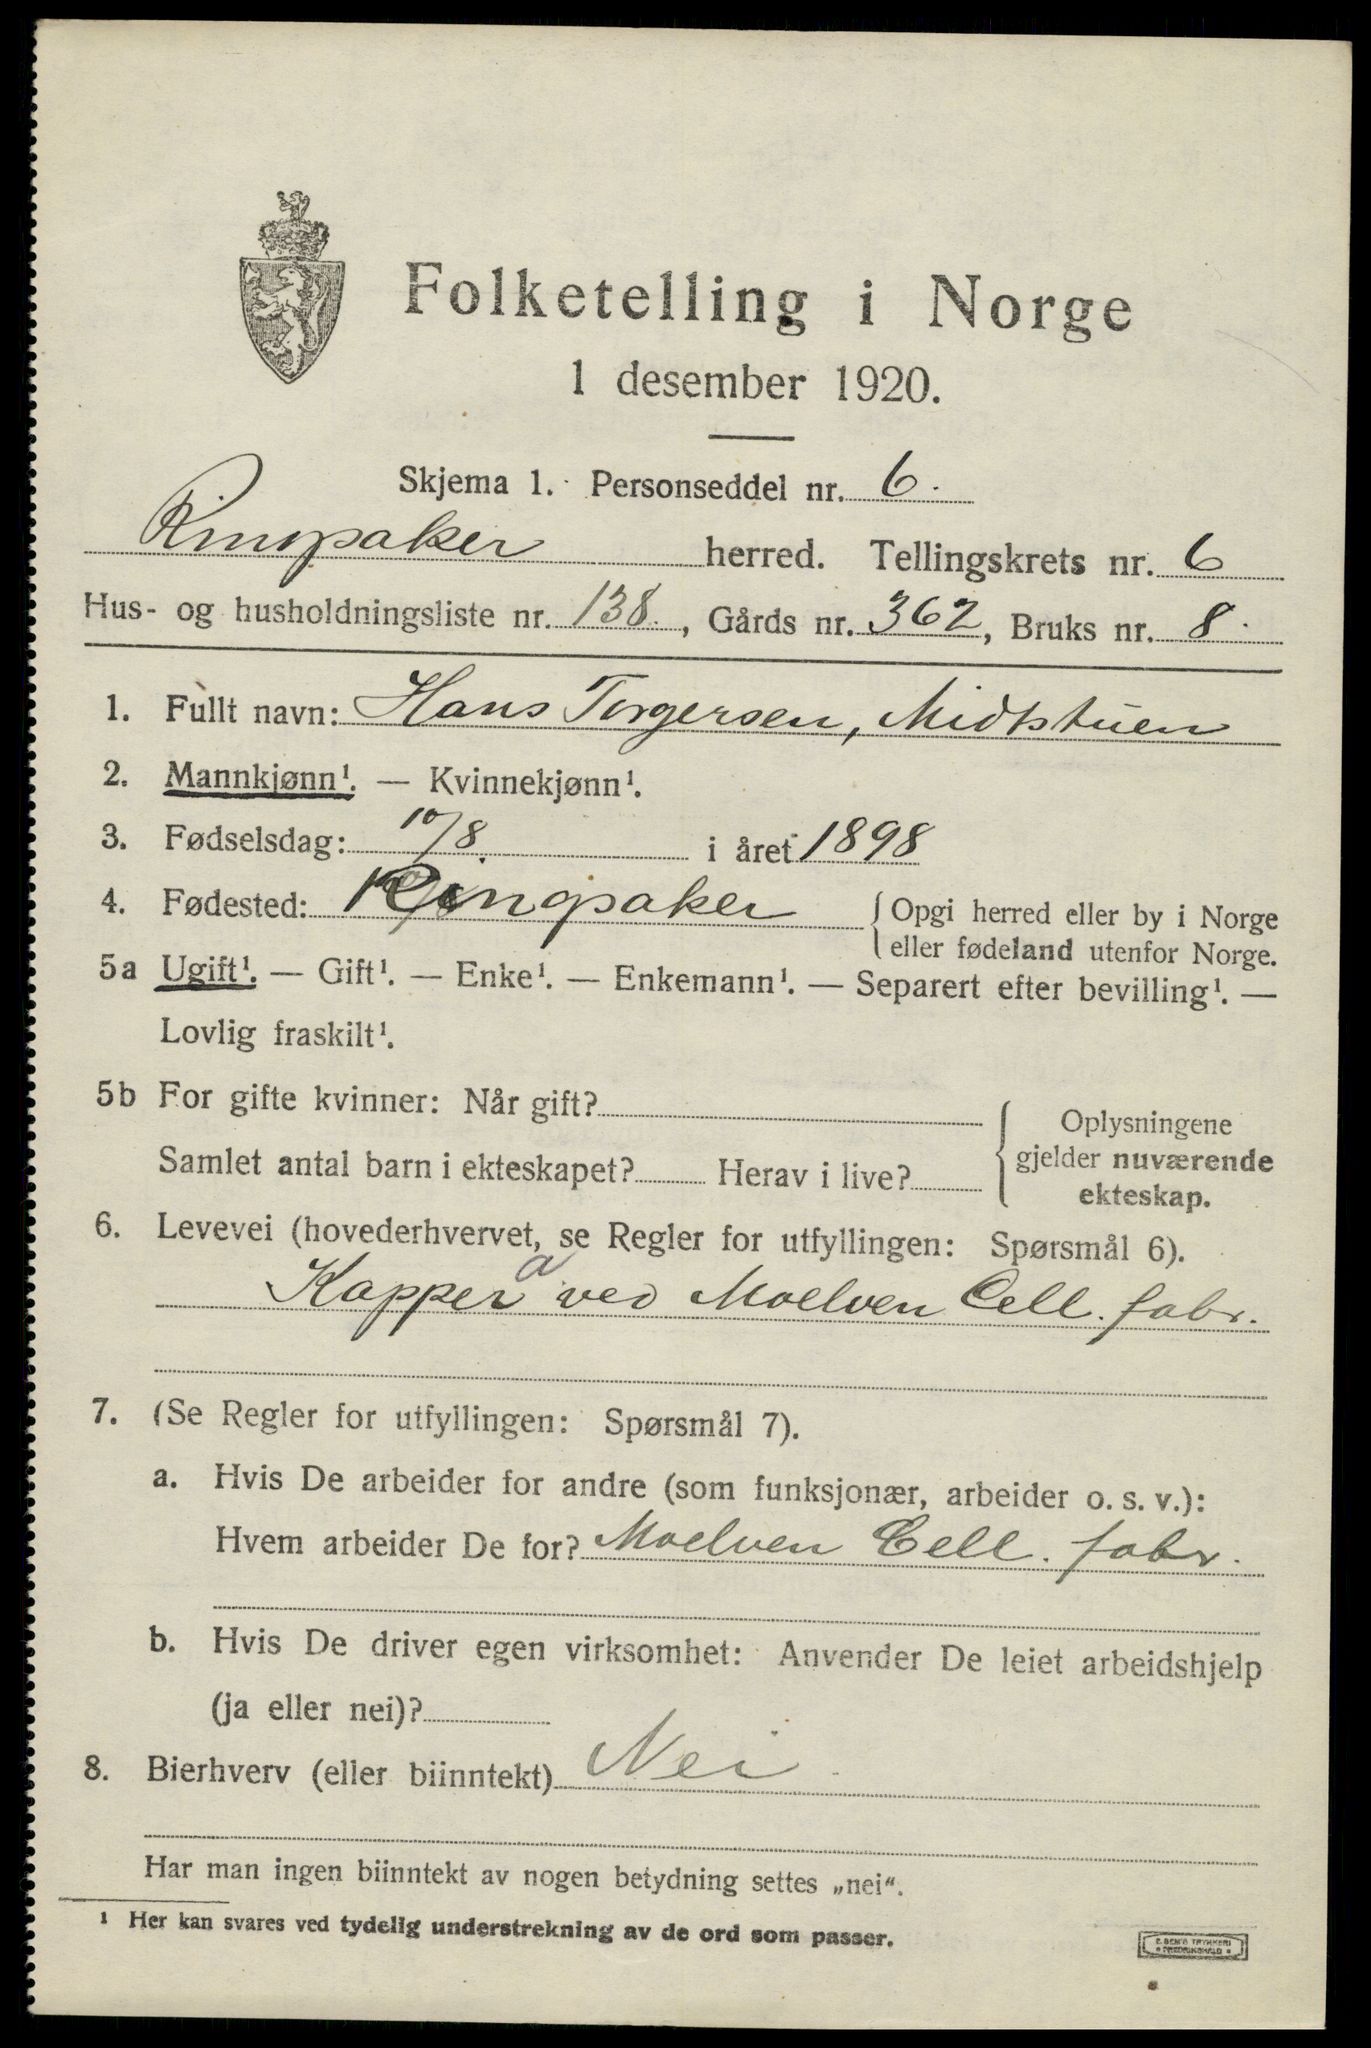 Folketelling i Norge
1 desember 1920.
Skjema 1. Personseddel nr. 6.
Ringsaker herred. Tellingskrets nr. 6
Hus- og husholdningsliste nr. 138., Gårds nr. 362, Bruks nr. 8.
1. Fullt navn: Hans Torgersen, Midtstuen
2. Mannkjønn¹. — Kvinnekjønn¹.
3. Fødselsdag: 10/8 i året 1898
4. Fødested: Ringsaker {Opgi herred eller by i Norge
eller fødeland utenfor Norge.
5a Ugift¹. — Gift¹. — Enke¹. — Enkemann¹. — Separert efter bevilling¹. —
Lovlig fraskilt¹.
5b For gifte kvinner: Når gift?
Samlet antal barn i ekteskapet? Herav i live?
{Oplysningene
gjelder nuværende
ekteskap.
6. Levevei (hovederhvervet, se Regler for utfyllingen: Spørsmål 6).
Kapper a ved Moelven Cell. fabr.
7. (Se Regler for utfyllingen: Spørsmål 7).
a. Hvis De arbeider for andre (som funksjonær, arbeider o. s. v.):
Hvem arbeider De for? Moelven Cell. fabr.
b. Hvis De driver egen virksomhet: Anvender De leiet arbeidshjelp
(ja eller nei)?
8. Bierhverv (eller biinntekt) Nei
Har man ingen biinntekt av nogen betydning settes „nei“.
¹ Her kan svares ved tydelig understrekning av de ord som passer.